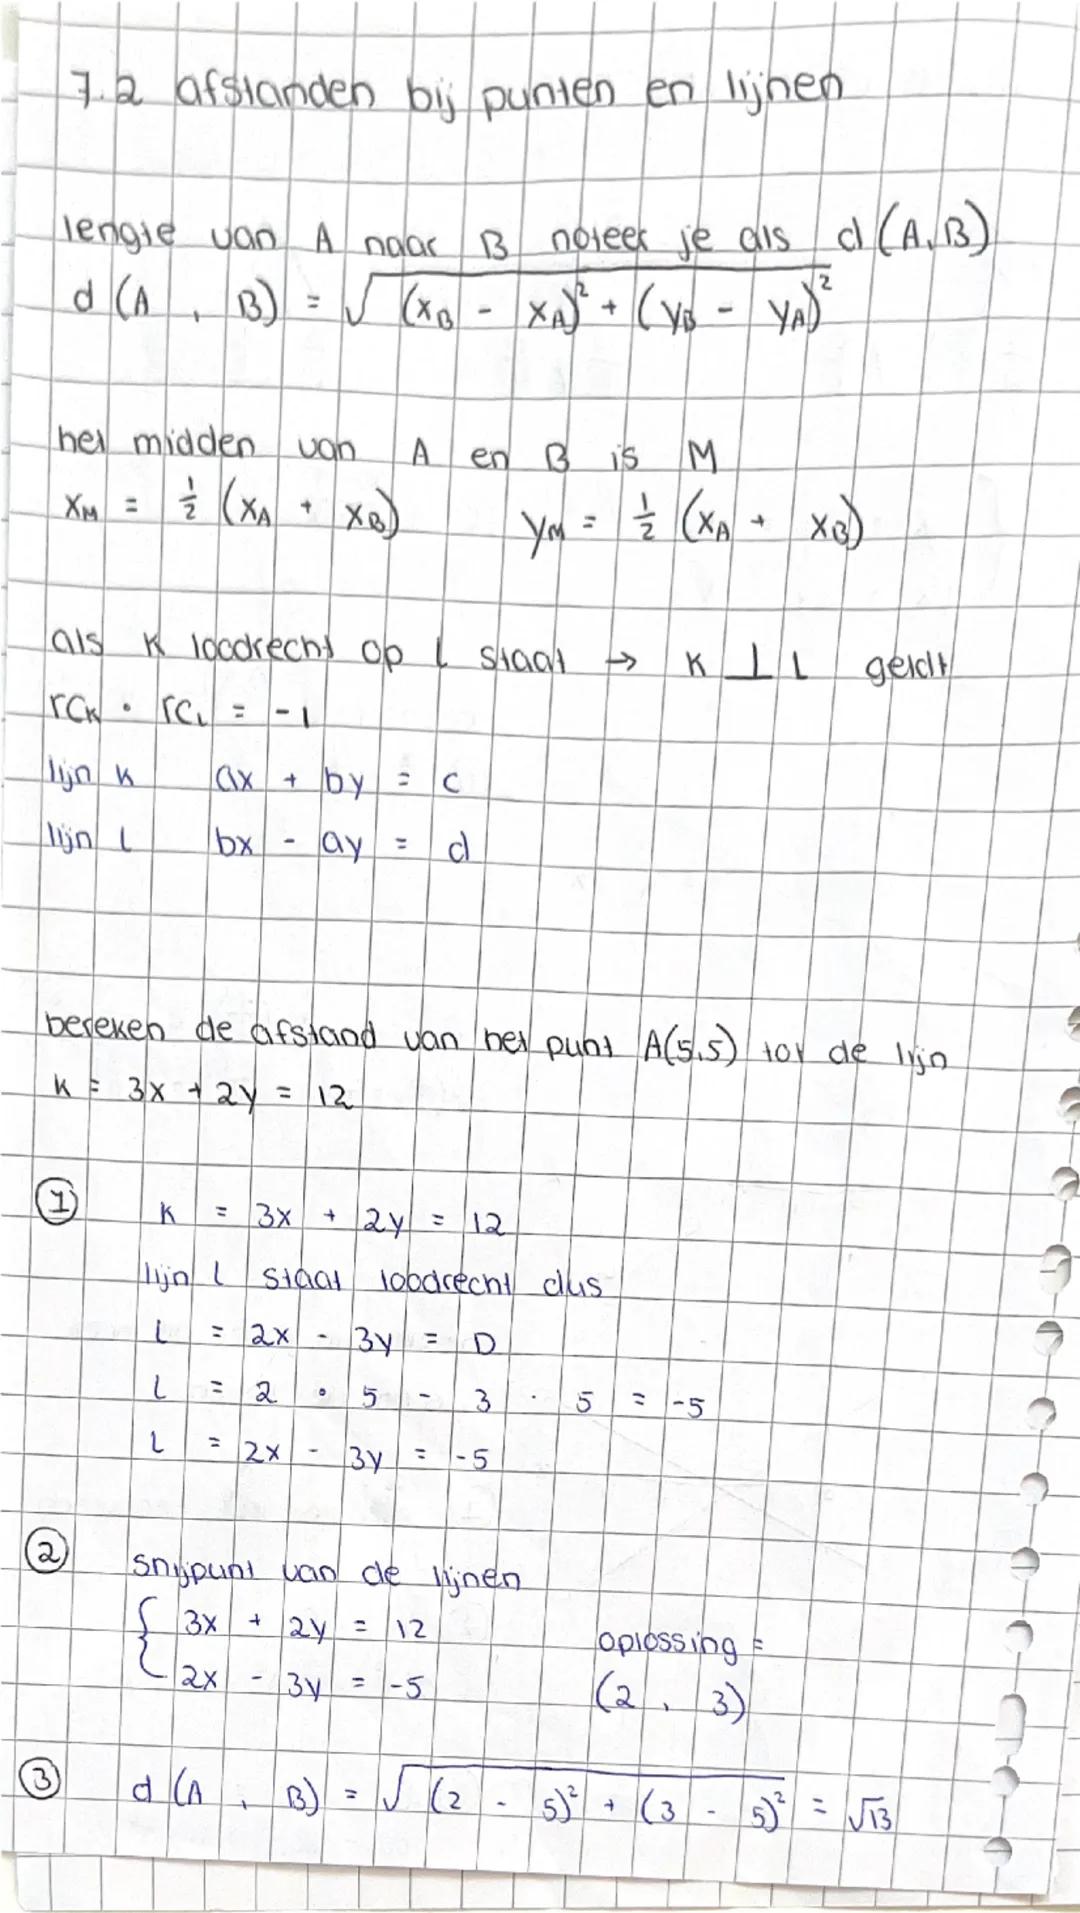 7.2 afstanden bij punten en lijnen
lengte van A naar B noteer je als d(A,B)
d(A, B) = √((x_B - x_A)² + (y_B - y_A)²)
het midden van A en B is M
x_M = ½ (x_A + x_B) y_M = ½ (x_A + x_B)
als k loodrecht op l staat → k ⊥ l geldt
rc_k · rc_l = -1
lijn k ax + by = c
lijn l bx - ay = d
bereken de afstand van het punt A(5,5) tot de lijn
k = 3x + 2y = 12
① k = 3x + 2y = 12
lijn l staat loodrecht dus
l = 2x - 3y = D
l = 2 · 5 - 3 · 5 = -5
l = 2x - 3y = -5
② snijpunt van de lijnen
{ 3x + 2y = 12
oplossing =
2x - 3y = -5 (2, 3)
③ d(A, B) = √((2 - 5)² + (3 - 5)²) = √13